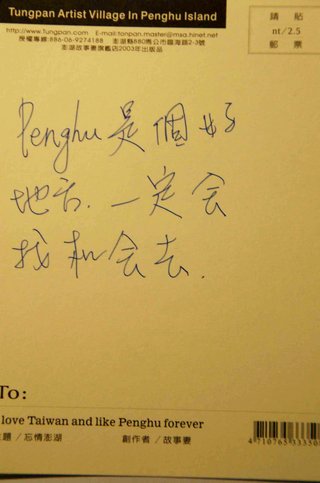 Tungpan Artist Village In Penghu Island
http://www.Tungpan.com E-mail:tonpan.master@msa.hinet.net
授權專線:886-06-9274188 澎湖縣880馬公市臨海路2-3號
澎湖故事妻旗艦店2003年出版品
請貼
nt/2.5
郵票
Penghu 是個好
地方.一定会
找机会去.
To:
love Taiwan and like Penghu forever
題/忘情澎湖 創作者/故事妻
4 710765 33330